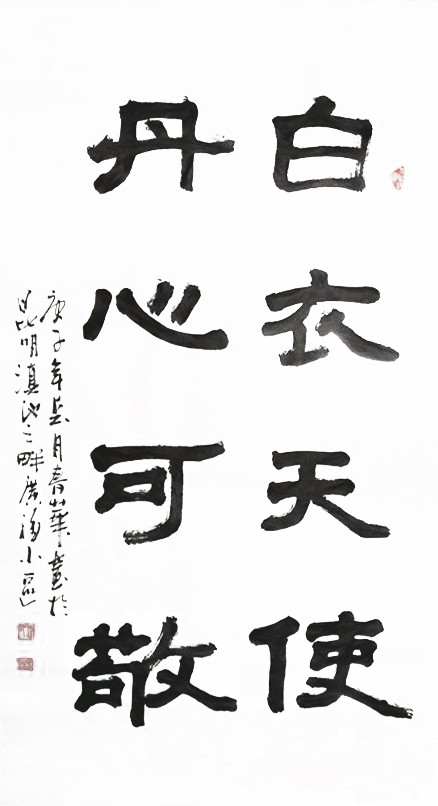 白衣天使
丹心可敬
庚子年月青華書於
昆明滇池之畔廣福小區